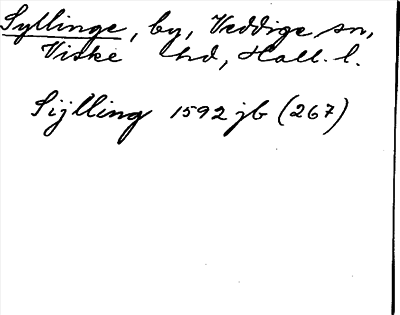 Syllinge, by, Veddige sn,
Viske hd, Hall. l.
Sijlling 1592 jb (267)